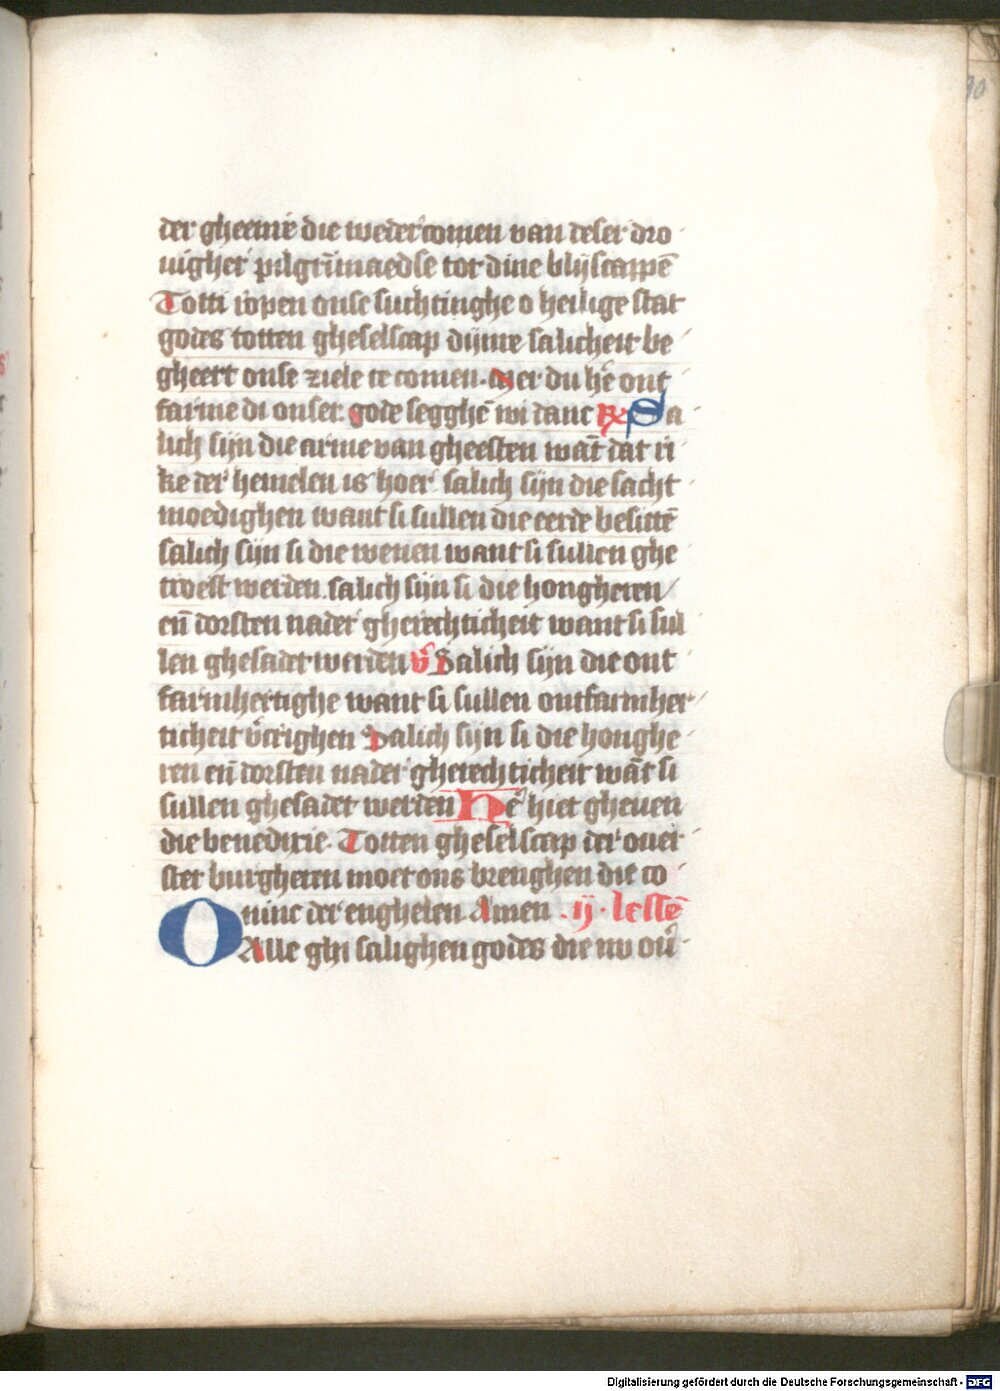 der gheenre die wedercomen van deser dro
uigher pilgrimaedse tot dine blijscappē
Totti ropen onse suchtinghe o heilige stat
godes totten gheselscap dijnre salicheit be
gheert onse ziele te comen. Mer du hē ont
farme di onser. gode segghē wi danc R Sa
lich sijn die arme van gheesten wāt dat ri
ke der hemelen is hoer salich sijn die sacht
moedighen want si sullen die eerde besittē
salich sijn si die wenen want si sullen ghe
troest werden. salich sijn si die hongheren
eñ dorsten nader gherechticheit want si sul
len ghesadet werden v̄ Salich sijn die ont
farmhertighe want si sullen ontfarmher
ticheit v̄crighen Salich sijn si die honghe
ren eñ dorsten nader gherechticheit wāt si
sullen ghesadet werden Hē hiet gheuen
die benedixie. Totten gheselscap der ouer
ster burgheren moet ons brenghen die co
ninc der enghelen Amen . ij . lesse̅
O Alle ghi salighen godes die nv ou̅
90
Digitalisierung gefördert durch die Deutsche Forschungsgemeinschaft - DFG